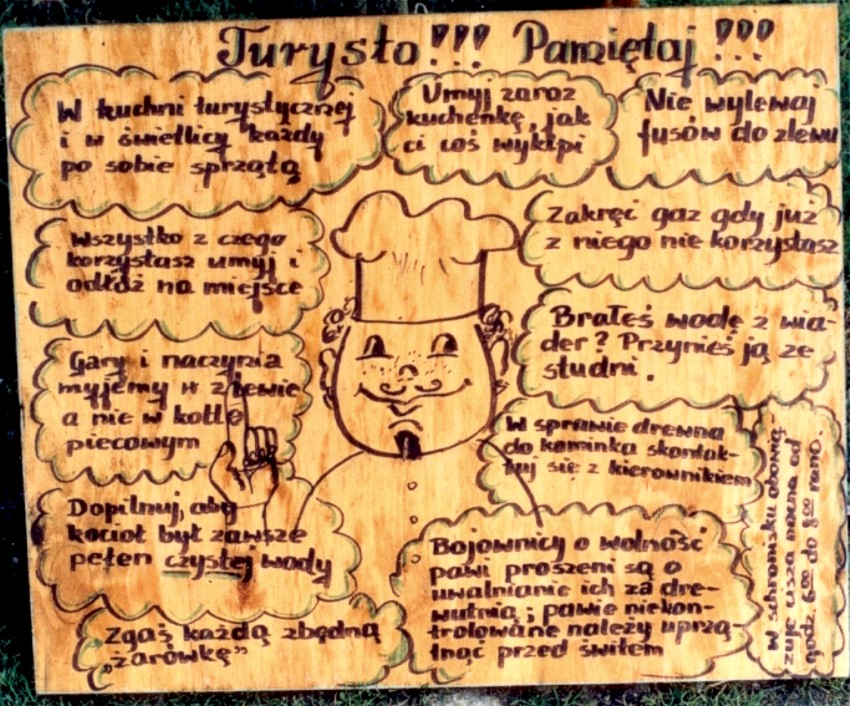 Turysto!!! Pamiętaj!!!
W kuchni turystycznej
i w świetlicy każdy
po sobie sprząta
Umyj zaraz
kuchenkę, jak
ci coś wykipi
Nie wylewaj
fusów do zlewu
Wszystko z czego
korzystasz umyj i
odłóż na miejsce
Zakręć gaz gdy już
z niego nie korzystasz
Brałeś wodę z wia-
der? Przynieś ją ze
studni.
Gary i naczynia
myjemy w zlewie
a nie w kotle
piecowym
W sprawie drewna
do kominka skontak-
tuj się z kierownikiem
Dopilnuj, aby
kocioł był zawsze
pełen czystej wody
Bojownicy o wolność
pawi proszeni są o
uwalnianie ich za dre-
wutnią; pawie niekon-
trolowane należy uprzą-
tnąć przed świtem
W schronisku obowią-
zuje cisza nocna od
godz. 6:00 do 8:00 rano.
Zgaś każdą zbędną
„żarówkę"